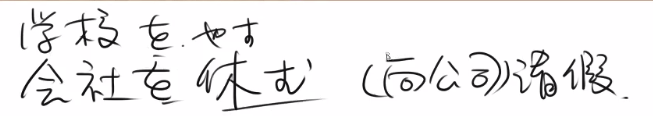 学校を.やす
会社を休む (向公司)请假.